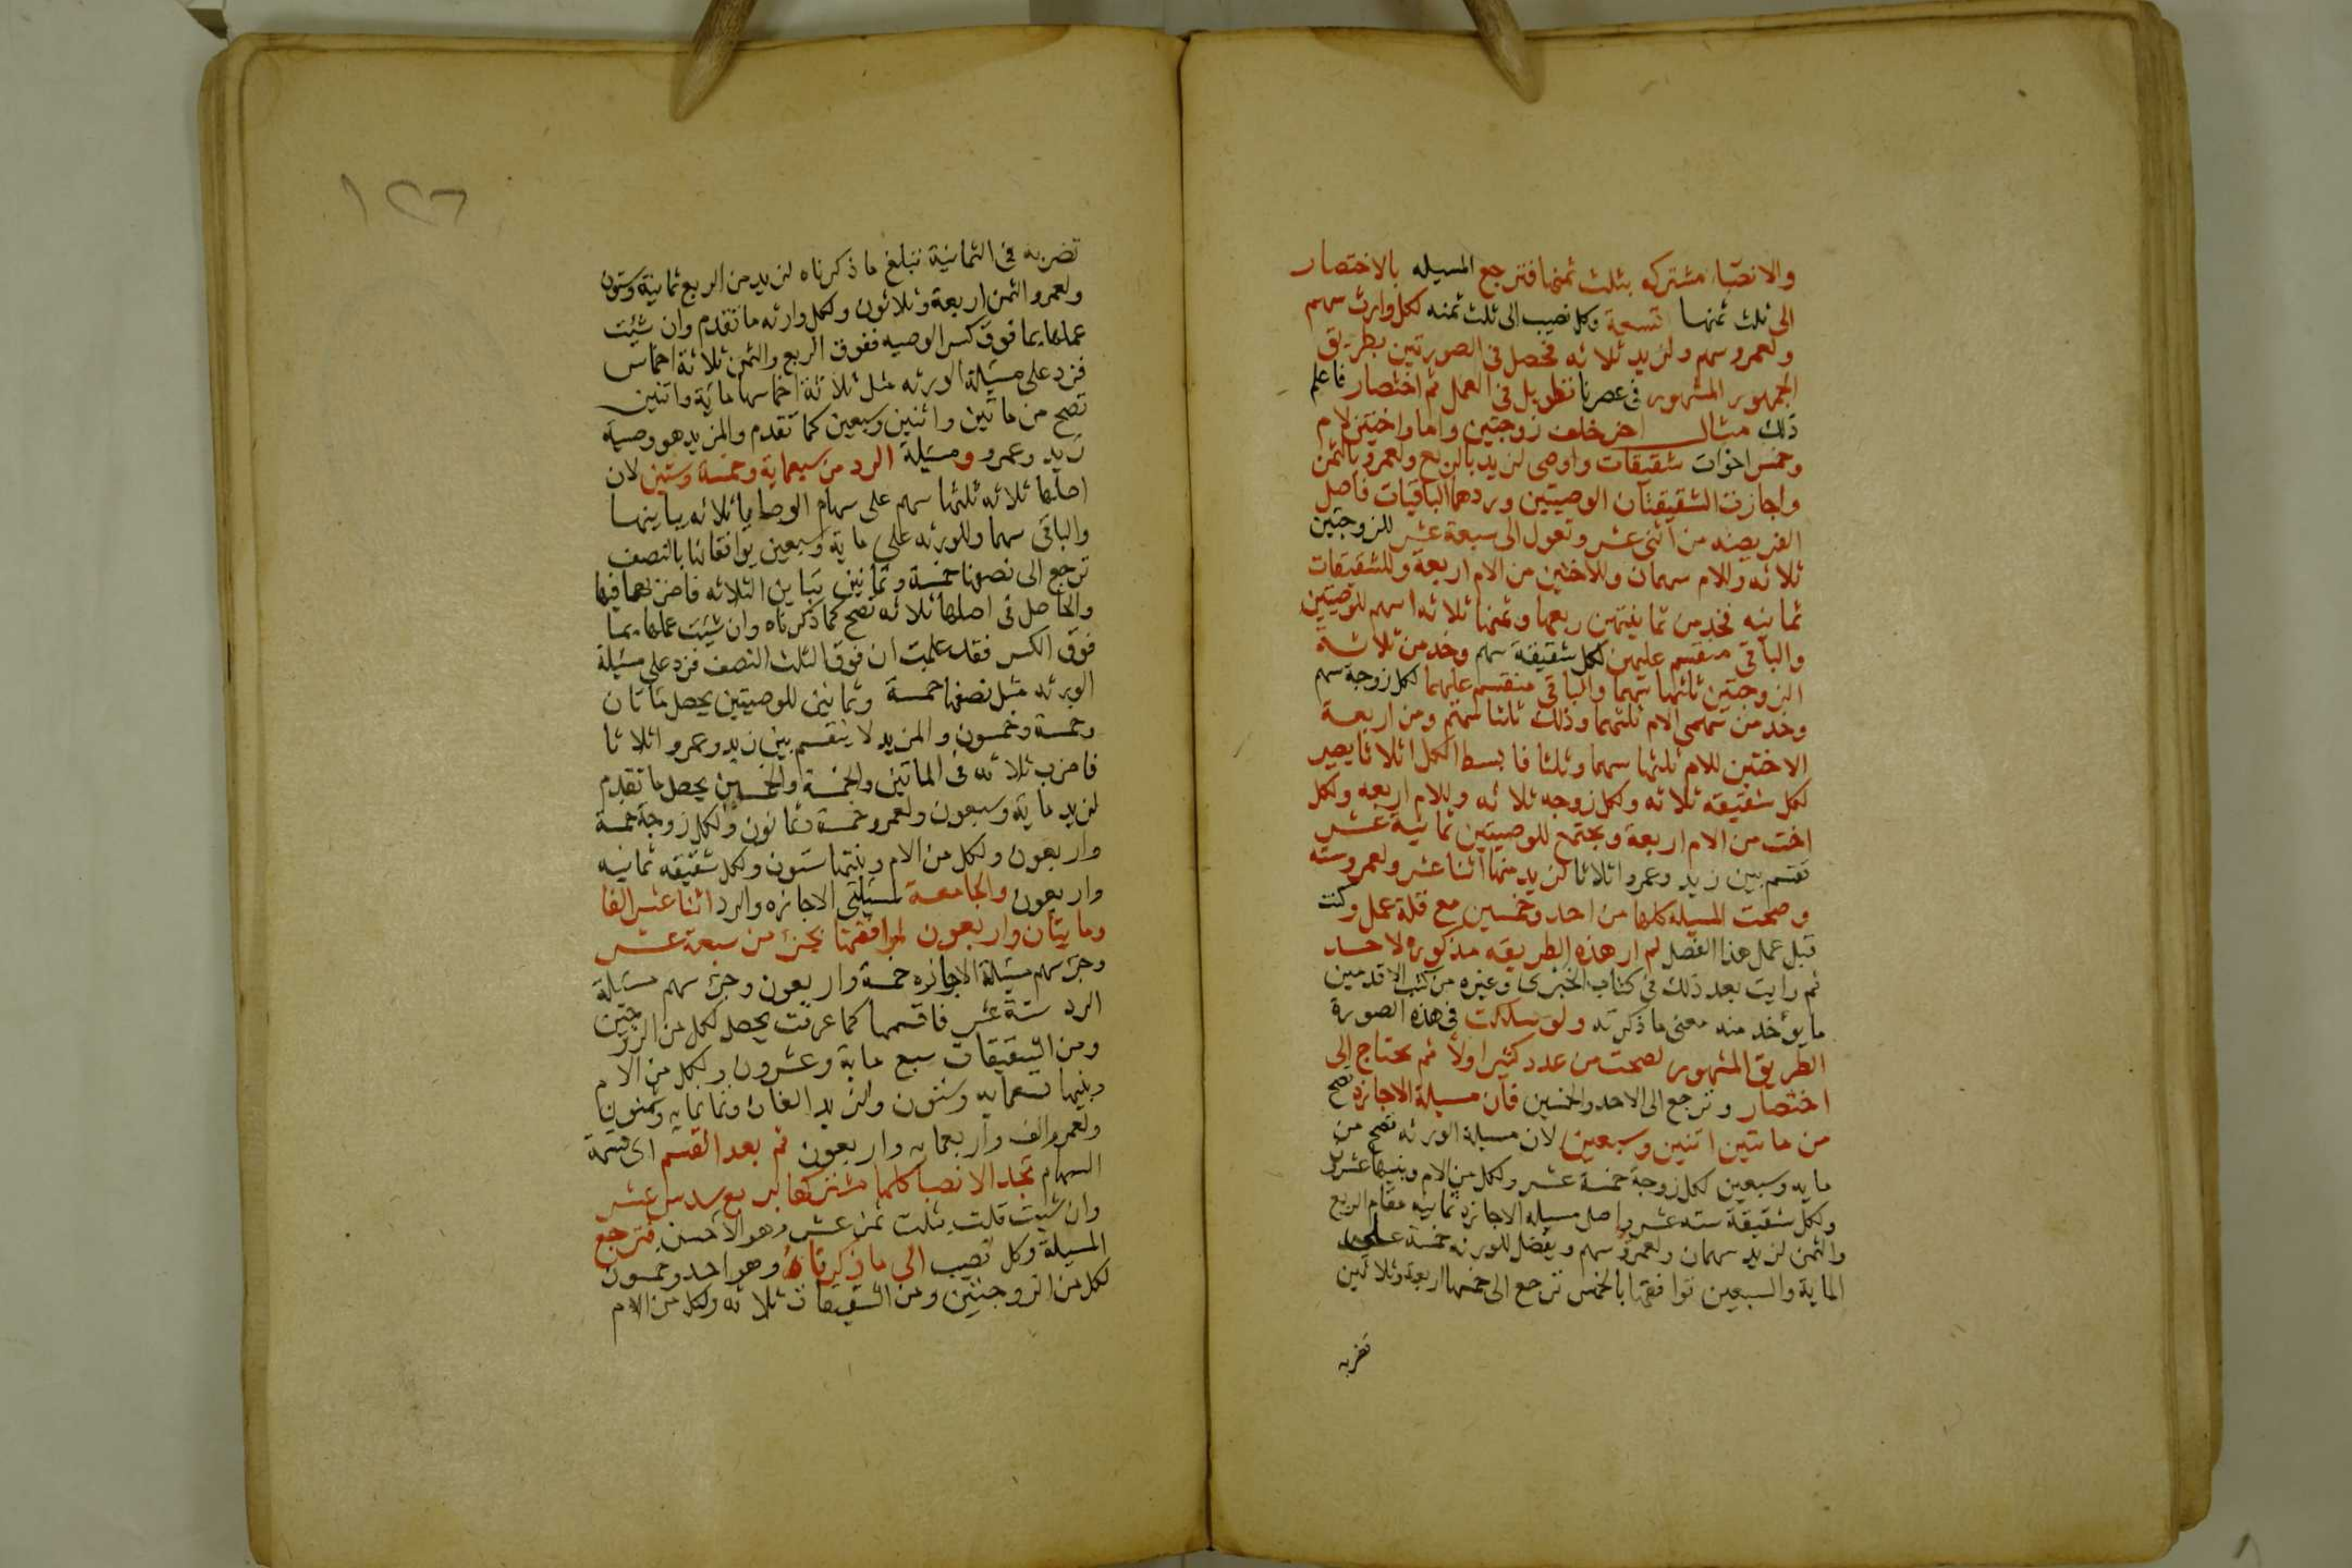 والانصبا مشتركه بثلث ثمنها فترجع المسيله بالاختصار
الى ثلث ثمنها تسعة وكل نصيب الى ثلث ثمنه لكل وارث سهم
ولعمرو سهم ولزيد ثلاثه فحصل فى الصورتين بطريق
الجمهور المشهور فى عصرنا تطويل فى العمل ثم اختصار فاعلم
ذلك مثال اخر خلف زوجتين واما واختين لام
وخمس اخوات شقيقات واوصى لزيد بالربع ولعمرو بالثمن
واجازت الشقيقتان الوصيتين وردهما الباقيات فاصل
الفريضه من اثنى عشر وتعول الى سبعة عشر للزوجتين
ثلاثه وللام سهمان وللاختين من الام اربعة وللشقيقات
ثمانيه فخذ من ثمانيتهن ربعها وثمنها ثلاثه اسهم للوصيتين
والباقى منقسم عليهن لكل شقيقة سهم وخذ من ثلاثة
الزوجتين ثلثها سهما والباقى منقسم عليهما لكل زوجة سهم
وخذ من سهمى الام ثلثهما وذلك ثلثا سهم ومن اربعة
الاختين للام ثلثها سهما وثلثا فابسط الكل اثلاثا يصير
لكل شقيقه ثلاثه ولكل زوجه ثلاثه وللام اربعه ولكل
اخت من الام اربعة ويجتمع للوصيتين ثمانية عشر
تقسم بين زيد وعمرو اثلاثا لزيد منها اثنا عشر ولعمرو سته
وصحت المسيله كلها من احد وخمسين مع قلة عمل وكنت
قبل عمل هذا الفصل لم ار هذه الطريقه مذكوره لاحد
ثم رايت بعد ذلك فى كتاب الخبرى وغيره من كتب الاقدمين
ما يؤخذ منه معنى ما ذكرته ولو سلكت فى هذه الصورة
الطريق المشهور لصحت من عدد كثير اولا ثم يحتاج الى
اختصار وترجع الى الاحد والخمسين فان مسيلة الاجازه تصح
من مائتين اثنين وسبعين لان مسيلة الورثه تصح من
مايه وسبعين لكل زوجة خمسة عشر ولكل من الام وبنيها عشرون
ولكل شقيقة سته عشر واصل مسيلة الاجازه ثمانيه مقام الربع
والثمن لزيد سهمان ولعمرو سهم ويفضل للورثه خمسة على
الماية والسبعين توافقها بالخمس ترجع الى خمسها اربعة وثلاثين
تضربه
١٢٦
تضربه فى الثمانية تبلغ ما ذكرناه لزيد من الربع ثمانية وستون
ولعمرو الثمن اربعة وثلاثون ولكل وارثه ما تقدم وان شيئت
عملها بما فوق كسر الوصيه ففوق الربع والثمن ثلاثة اخماس
فزد على مسيلة الورثه مثل ثلاثة اخماسها مايه واثنين
تصح من مائتين واثنين وسبعين كما تقدم والمزيد هو وصية
زيد وعمرو ومسيلة الرد من سبعماية وخمسه وستين لان
اصلها ثلاثه ثلثها سهم على سهام الوصايا ثلاثه يباينها
والباقى سهمان للورثه على ماية وسبعين يوافقانها بالنصف
ترجع الى نصفها خمسة وثمانين تباين الثلاثه فاضربهما فيها
والحاصل فى اصلها ثلاثه تصح كما ذكرناه وان شيئت عملها بما
فوق الكسر فقد علمت ان فوق الثلث النصف فزد على مسيلة
الورثه مثل نصفها خمسة وثمانين للوصيتين يحصل مائتان
وخمسة وخمسون والمزيد لا ينقسم بين زيد وعمرو اثلاثا
فاضرب ثلاثه فى المائتين والخمسة والخمسين يحصل ما تقدم
لزيد مايه وسبعون ولعمرو خمسة وثمانون ولكل زوجة خمسة
واربعون ولكل من الام وبنتها ستون ولكل شقيقه ثمانيه
واربعون والجامعة لمسيلتى الاجازه والرد اثنا عشر الفا
ومايتان واربعون لموافقتهما بجزء من سبعة عشر
وجزء سهم مسيلة الاجازه خمسة واربعون وجزء سهم مسيلة
الرد ستة عشر فاقسمها كما عرفت يحصل لكل من الزوجتين
ومن الشقيقات سبع مايه وعشرون ولكل من الام
وبنيها تسعمايه وستون ولزيد الفان وثمانمايه وثمانون
ولعمرو الف واربعمايه واربعون ثم بعد القسم اى قسمة
السهام تجد الانصبا كلها مشتركها بربع سدس عشر
وان شيئت قلت بثلث ثمن عشر وهو الاحسن فترجع
المسيلة وكل نصيب الى ما ذكرناه وهو احد وخمسون
لكل من الزوجتين ومن الشقيقات ثلاثه ولكل من الام